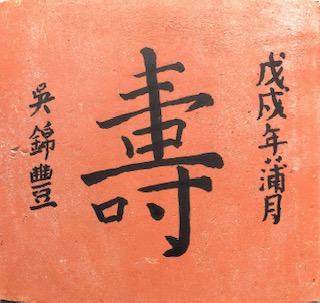 戊戌年蒲月
壽
吳錦豐